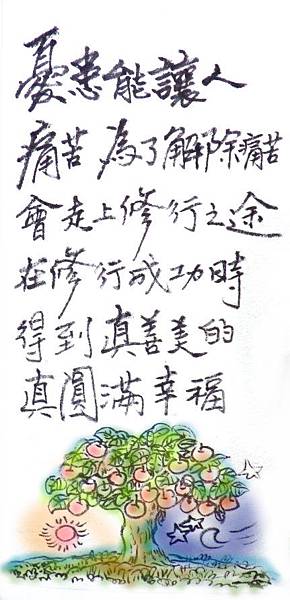 憂患能讓人
痛苦 為了解除痛苦
會走上修行之途
在修行成功時
得到真善美的
真圓滿幸福